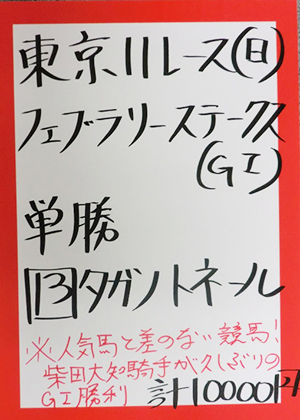 東京11レース(日)
フェブラリーステークス
(GI)
単勝
13タガノトネール
※人気馬と差のない競馬!
柴田大知騎手が久しぶりの
GI勝利
計10000円